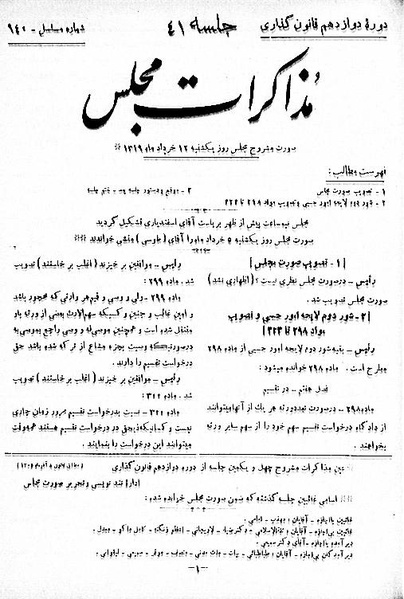 دورهٔ دوازدهم قانون گذاری
جلسه ۴۱
شماره مسلسل - ۱۴۰
مذاکرات مجلس
صورت مشروح مجلس روز یکشنبه ۱۲ خرداد ماه ۱۳۱۹
فهرست مطالب:
۱ - تصویب صورت مجلس
۲ - شور دوم لایحه امور حسبی و تصویب مواد ۲۹۸ تا ۳۲۳
۳ - موقع و دستور جلسه بعد - ختم جلسه
مجلس نیم ساعت پیش از ظهر بریاست آقای اسفندیاری تشکیل گردید
صورت مجلس روز یکشنبه ۵ خرداد ماه را آقای (طوسی) منشی خواندند
[۱ - تصویب صورت مجلس]
رئیس - در صورت مجلس نظری نیست؟ (اظهاری نشد)
صورت مجلس تصویب شد.
[۲ - شور دوم لایحه امور حسبی و تصویب
مواد ۲۹۸ تا ۳۲۳]
رئیس - بقیه شور دوم لایحه امور حسبی از ماده ۲۹۸
مطرح است. ماده ۲۹۸ خوانده میشود:
فصل هفتم - در تقسیم
ماده ۲۹۸ - در صورت تعدد ورثه هر یک از آنها میتوانند
از دادگاه درخواست تقسیم سهم خود را از سهم سایر ورثه
بخواهند.
رئیس - موافقین برخیزند (اغلب برخاستند) تصویب
شد. ماده ۲۹۹:
ماده ۲۹۹ - ولی و وصی و قیم هر وارثی که محجور باشد
و امین غائب و جنین و کسیکه سهم الارث بعضی از ورثه باو
منتقل شده است و همچنین موصی له و وصی راجع بموصی به
در صورتیکه وصیت بجزء مشاع از ترکه شده باشد حق
درخواست تقسیم را دارند.
رئیس - موافقین برخیزند (اغلب برخاستند) تصویب
شد. ماده ۳۰۰:
ماده ۳۰۰ - نسبت بدرخواست تقسیم مرور زمان جاری
نیست و کسانیکه ذیحق در درخواست تقسیم هستند همه وقت
میتوانند این درخواست را بنمایند.
عین مذاکرات مشروح چهل و یکمین جلسه از دوره دوازدهم قانون گذاری
اداره تند نویسی و تحریر صورت مجلس
اسامی غائبین جلسه گذشته که ضمن صورت مجلس خوانده شده:
- ۱ -